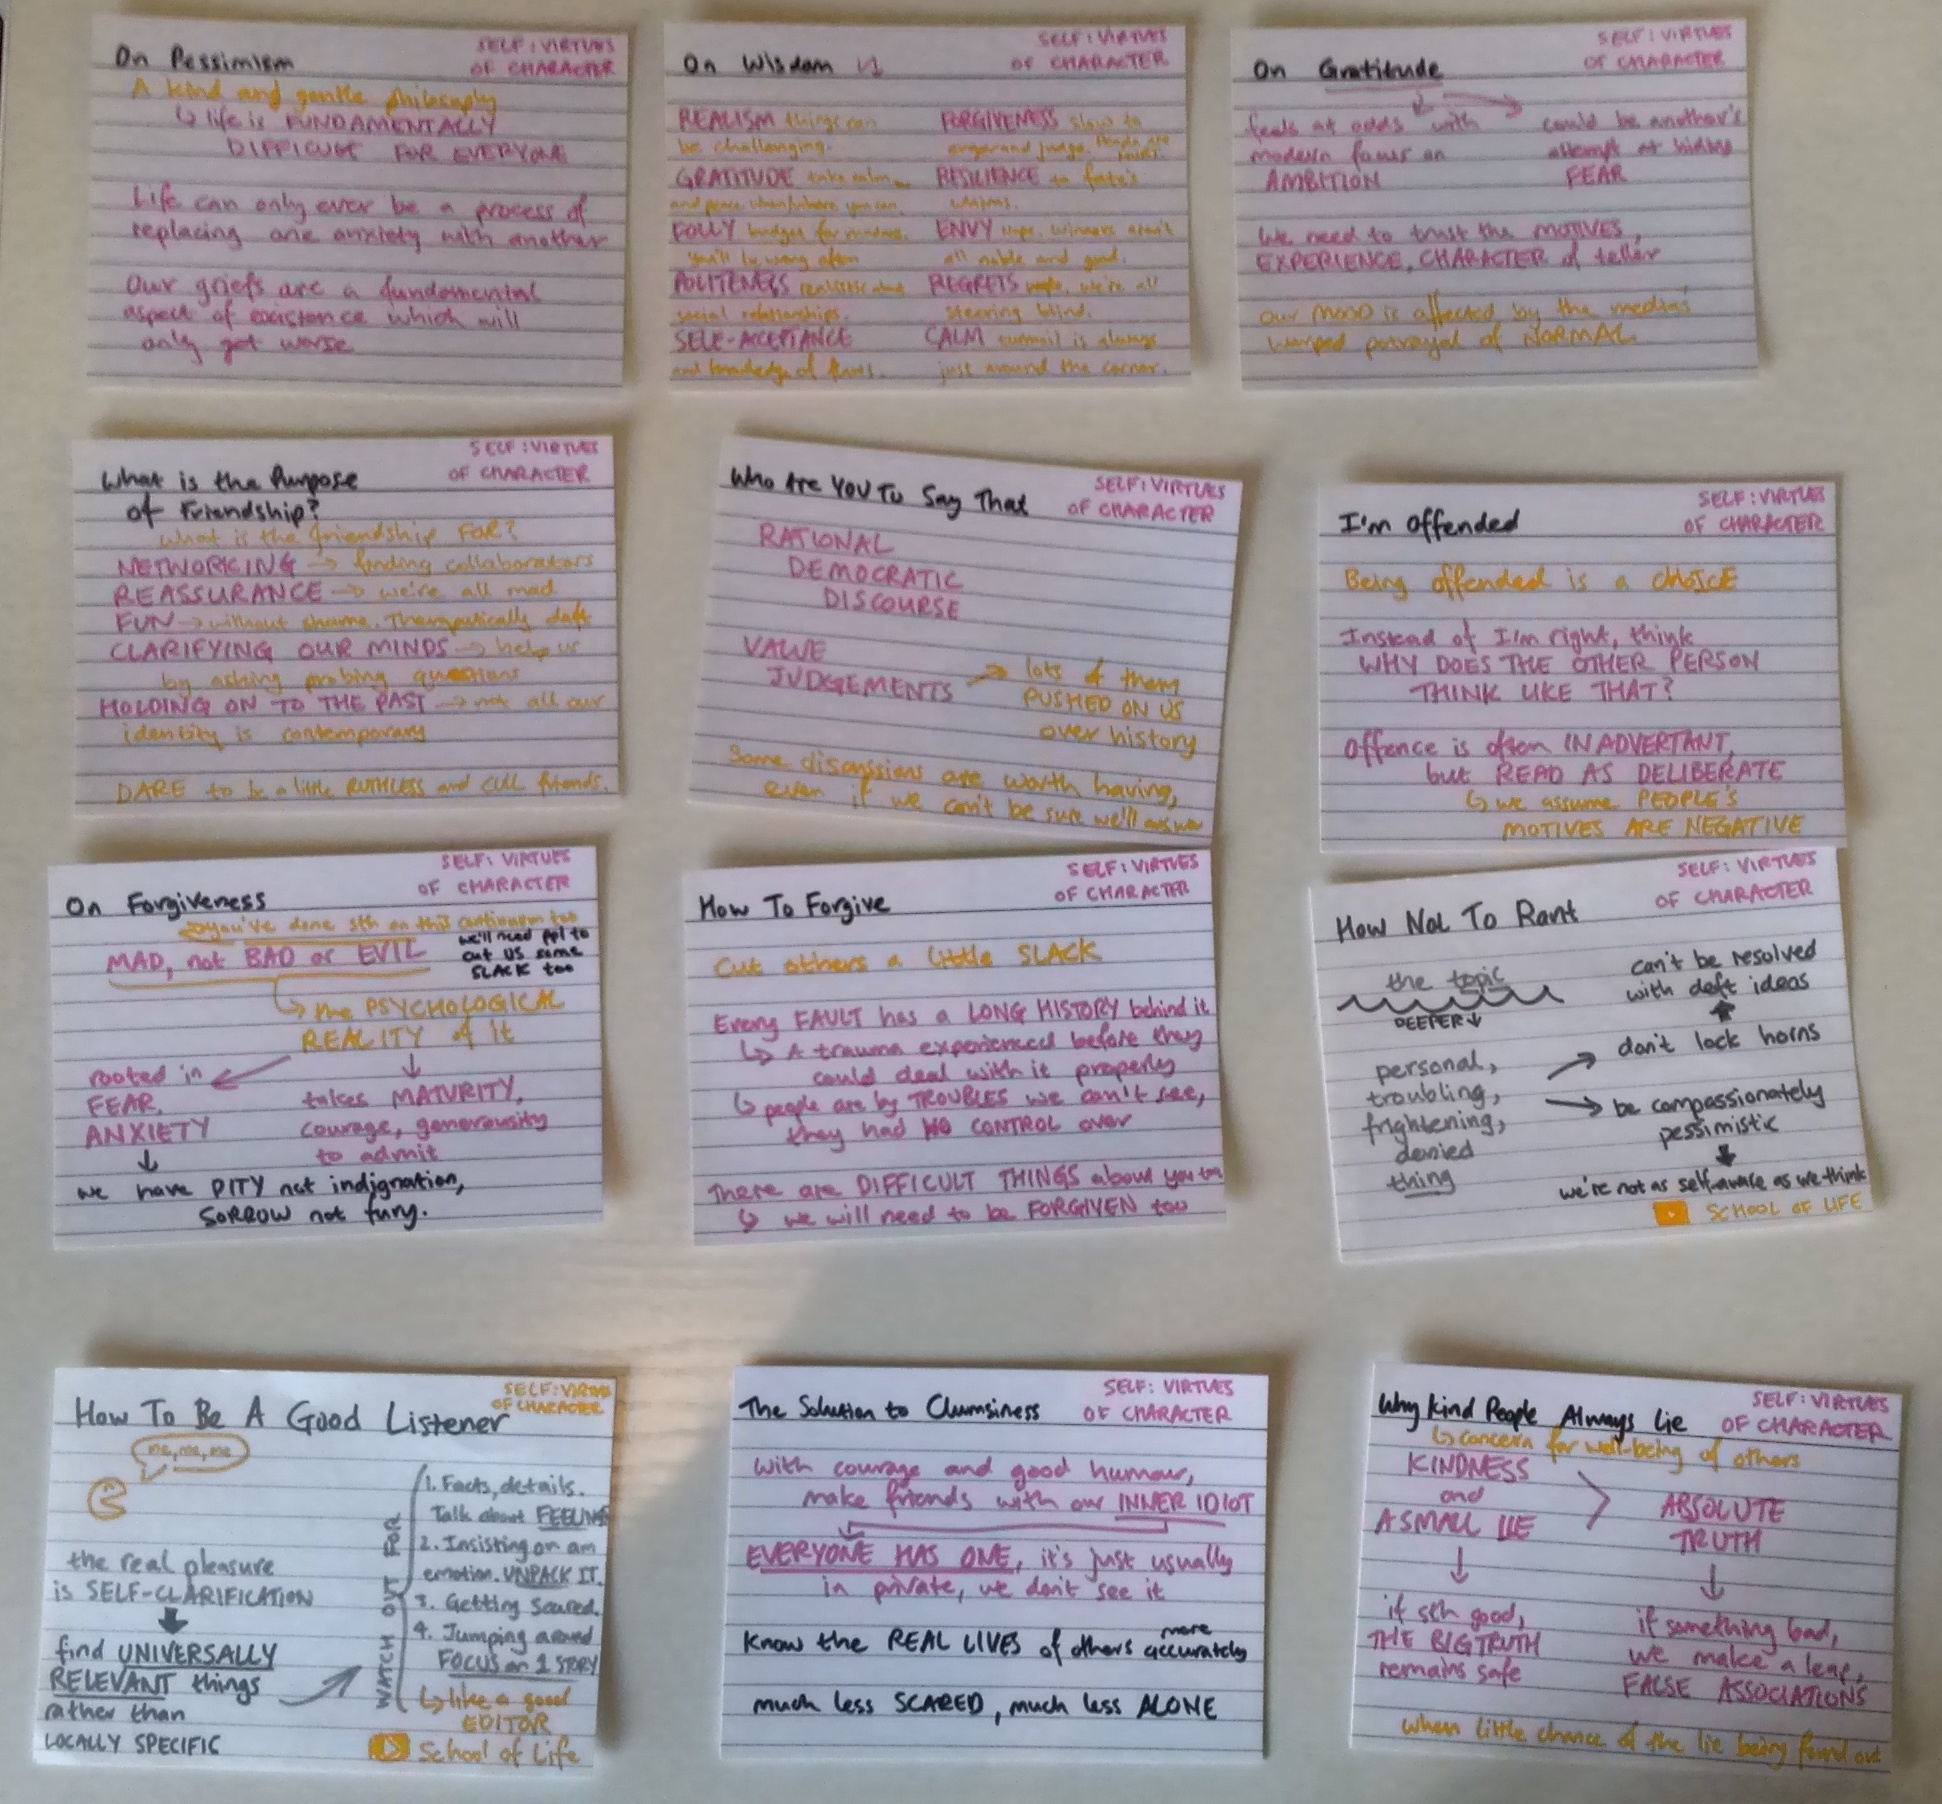 On Pessimism
SELF: VIRTUES
OF CHARACTER
A kind and gentle philosophy
↳ life is FUNDAMENTALLY
DIFFICULT FOR EVERYONE
Life can only ever be a process of
replacing one anxiety with another
Our griefs are a fundamental
aspect of existence which will
only get worse
On Wisdom
SELF: VIRTUES
OF CHARACTER
REALISM things can
be challenging.
GRATITUDE take calm
and peace when/where you can.
FOLLY budget for madness.
you'll be wrong often
POLITENESS realistic about
social relationships.
SELF-ACCEPTANCE
and knowledge of flaws.
FORGIVENESS slow to
anger and judge. People are
RESILIENCE to fate's
whims.
ENVY nope, winners aren't
all noble and good.
REGRETS nope, we're all
steering blind.
CALM turmoil is always
just around the corner.
On Gratitude
SELF: VIRTUES
OF CHARACTER
feels at odds with
modern focus on
AMBITION
could be another's
attempt at hiding
FEAR
We need to trust the MOTIVES,
EXPERIENCE, CHARACTER of teller
our MOOD is affected by the medias'
warped potrayal of NORMAL
What is the Purpose
of Friendship?
SELF: VIRTUES
OF CHARACTER
What is the friendship FOR?
NETWORKING → finding collaborators
REASSURANCE → we're all mad
FUN → without shame. Therapeutically daft
CLARIFYING OUR MINDS → help us
by asking probing questions
HOLDING ON TO THE PAST → not all our
identity is contemporary
DARE to be a little RUTHLESS and CULL friends.
Who Are You To Say That
SELF: VIRTUES
OF CHARACTER
RATIONAL
DEMOCRATIC
DISCOURSE
VALUE
JUDGEMENTS → lots of them
PUSHED ON US
over history
Some discussions are worth having,
even if we can't be sure we'll answer
I'm Offended
SELF: VIRTUES
OF CHARACTER
Being offended is a CHOICE
Instead of I'm right, think
WHY DOES THE OTHER PERSON
THINK LIKE THAT?
Offence is often INADVERTANT,
but READ AS DELIBERATE
↳ we assume PEOPLE'S
MOTIVES ARE NEGATIVE
On Forgiveness
SELF: VIRTUES
OF CHARACTER
you've done sth on this continuum too
MAD, not BAD or EVIL
we'll need ppl to
cut US some
SLACK too
the PSYCHOLOGICAL
REALITY of it
rooted in
FEAR,
ANXIETY
takes MATURITY,
courage, generousity
to admit
we have PITY not indignation,
SORROW not fury.
How To Forgive
SELF: VIRTUES
OF CHARACTER
Cut others a little SLACK
Every FAULT has a LONG HISTORY behind it
↳ A trauma experienced before they
could deal with it properly
↳ people are by TROUBLES we can't see,
they had NO CONTROL over
There are DIFFICULT THINGS about you too
↳ we will need to be FORGIVEN too
How Not To Rant
SELF: VIRTUES
OF CHARACTER
the topic
DEEPER ↓
personal,
troubling,
frightening,
denied
thing
can't be resolved
with deft ideas
don't lock horns
be compassionately
pessimistic
we're not as self-aware as we think
SCHOOL OF LIFE
How To Be A Good Listener
SELF: VIRTUES
OF CHARACTER
me, me, me
the real pleasure
is SELF-CLARIFICATION
find UNIVERSALLY
RELEVANT things
rather than
LOCALLY SPECIFIC
WATCH OUT FOR
1. Facts, details.
Talk about FEELINGS
2. Insisting on an
emotion. UNPACK IT.
3. Getting Scared.
4. Jumping around
FOCUS on 1 STORY
↳ like a good
EDITOR
School of Life
The Solution to Clumsiness
SELF: VIRTUES
OF CHARACTER
With courage and good humour,
make friends with our INNER IDIOT
EVERYONE HAS ONE, it's just usually
in private, we don't see it
more
Know the REAL LIVES of others accurately
much less SCARED, much less ALONE
Why Kind People Always Lie
SELF: VIRTUES
OF CHARACTER
↳ concern for well-being of others
KINDNESS
and
A SMALL LIE
>
ABSOLUTE
TRUTH
if sth good,
THE BIG TRUTH
remains safe
if something bad,
we make a leap,
FALSE ASSOCIATIONS
when little chance of the lie being found out